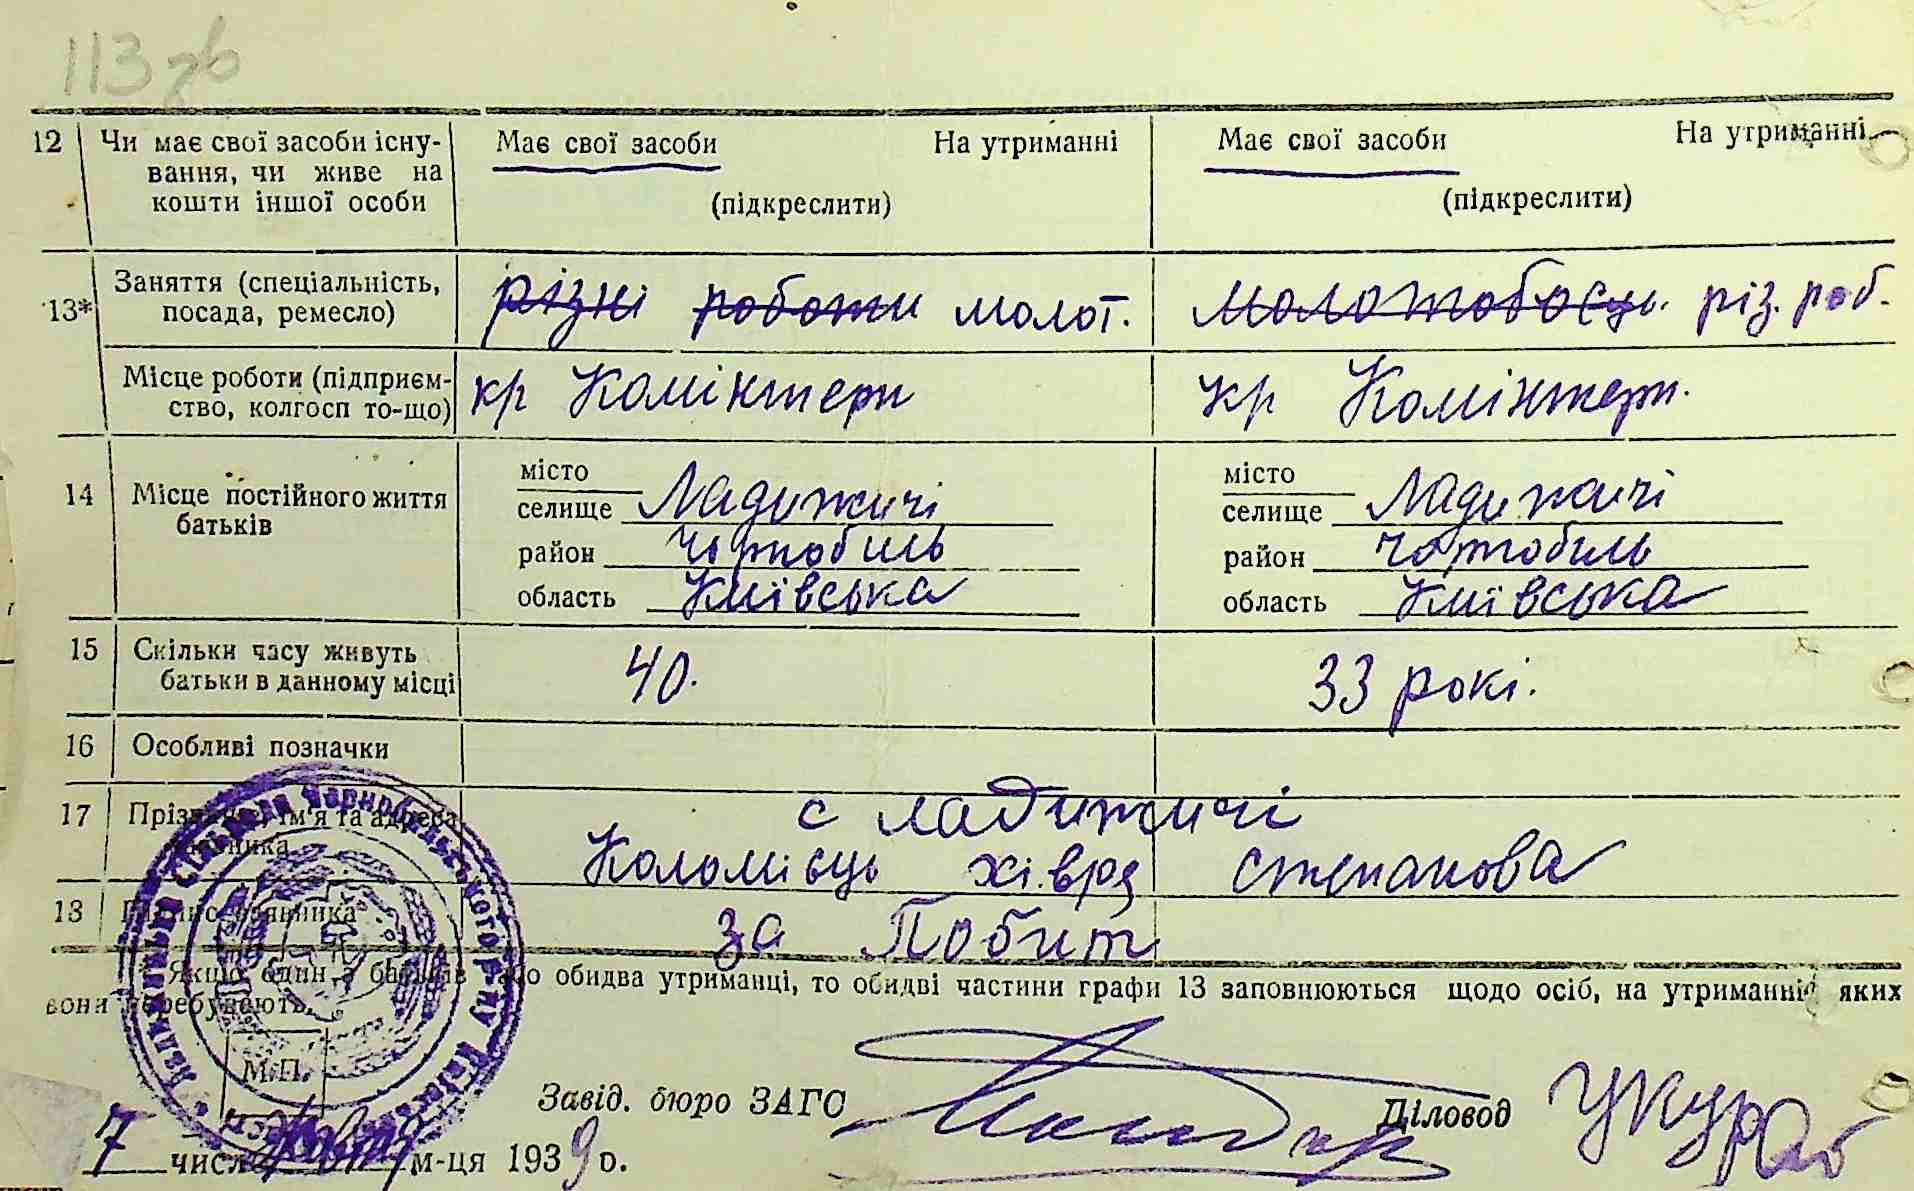 113 зв
12 Чи має свої засоби існу- Має свої засоби На утриманні Має свої засоби На утриманні
вання, чи живе на
кошти іншої особи (підкреслити) (підкреслити)
13* Заняття (спеціальність, різні роботи молот. молотобоєць. різ. роб.
посада, ремесло)
Місце роботи (підприєм- кр Комінтерн кр Комінтерн.
ство, колгосп то-що)
14 Місце постійного життя місто місто
батьків селище Ладижичі селище Ладижичі
район Чорнобиль район Чорнобиль
область Київська область Київська
15 Скільки часу живуть 40. 33 рокі.
батьки в данному місці
16 Особливі позначки
с Ладижичі
17 Прізвище, ім'я та адреса
Коломієць Хівря Степанова
13 Підпис заявника за
Якщо один з батьків або обидва утриманці, то обидві частини графи 13 заповнюються щодо осіб, на утриманні яких
вони перебувають.
М.П.
Завід. бюро ЗАГС Діловод
7 числа м-ця 1939 о.